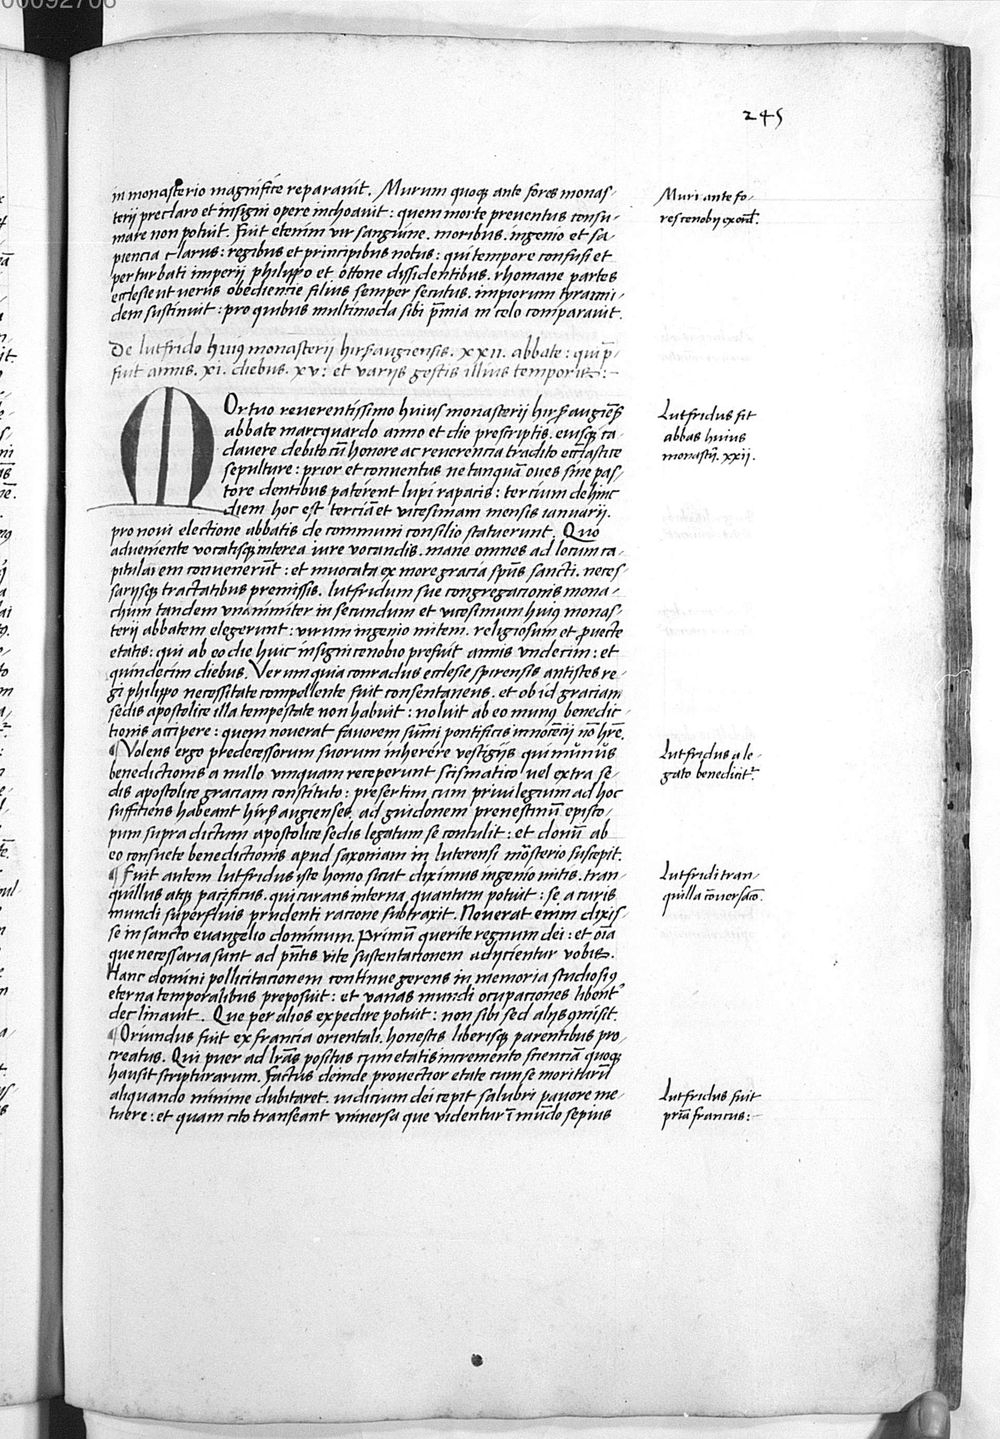 245
in monasterio magnifice reparauit. Murum quoqꝫ ante fores monas-
terij preclaro et insigni opere inchoauit: quem morte preuentus consu-
mare non potuit. Fuit etenim vir sanguine. moribus. ingenio et sa-
piencia clarus: regibus et principibus notus: qui tempore confusi et
perturbati imperij philippo et ottone dissidentibus. rhomane partes
ecclesie ut verus obediencie filius semper secutus. impiorum tyranni-
dem sustinuit: pro quibus multimoda sibi p̄mia in celo comparauit.
Muri ante fo-
res cenobij exord̄.
De lutfrido huiꝰ monasterij hirsaugiensis. xxii. abbate: qui p̄-
fuit annis. xi. diebus. xv: et varijs gestis illius temporis:-
MOrtuo reuerentissimo huius monasterij hirsaugien̄s
abbate marcquardo anno et die prescriptis. eiusqꝫ ca-
dauere debito cū honore ac reuerencia tradito eccl̄astice
sepulture: prior et conuentus ne tanquā oues sine pas-
tore dentibus paterent lupi rapacis: tercium dehinc
diem hoc est terciā et vicesimam mensis ianuarij.
pro noui electione abbatis de communi consilio statuerunt. Quo
adueniente vocatisqꝫ interea iure vocandis. mane omnes ad locum ca-
pitularem conuenerūt: et inuocata ex more gracia sp̄us sancti. neces-
sarijsqꝫ tractatibus premissis. lutfridum sue congregacionis mona-
chum tandem vnanimiter in secundum et vicesimum huiꝰ monas-
terij abbatem elegerunt: virum ingenio mitem. religiosum et ꝓuecte
etatis: qui ab eo die huic insigni cenobio prefuit annis vndecim: et
quindecim diebus. Verum quia conradus ecclesie spirensis antistes re-
gi philippo necessitate compellente fuit consentaneus. et ob id graciam
sedis apostolice illa tempestate non habuit: noluit ab eo munꝰ benedic-
tionis accipere: quem nouerat fauorem sūmi pontificis innocēcij nō h̄re.
¶ Volens ergo predecessorum suorum inherere vestigijs qui munus
benedictionis a nullo vmquam receperunt scismatico uel extra se-
dis apostolice graciam constituto: presertim cum priuilegium ad hoc
sufficiens habeant hirsaugienses. ad guidonem prenestinū episco-
pum supra dictum apostolice sedis legatum se contulit: et donū ab
eo consuete benedictionis apud saxoniam in luterensi mōsterio suscepit.
¶ Fuit autem lutfridus iste homo sicut diximus ingenio mitis. tran-
quillus atqꝫ pacificus. qui curans interna quantum potuit: se a curis
mundi superfluis prudenti racione subtraxit. Nouerat enim dixis-
se in sancto euangelio dominum. Primū querite regnum dei: et oīa
que necessaria sunt ad p̄ntis vite sustentacionem adijcientur vobis.
Hanc domini pollicitacionem continue gerens in memoria studiosiꝰ
eterna temporalibus preposuit: et vanas mundi ocupaciones libentˀ
declinauit. Que per alios expedire potuit: non sibi sed alijs ꝯmisit.
¶ Oriundus fuit ex francia orientali. honestis liberisqꝫ parentibus pro-
creatus. Qui puer ad lr̄as positus cum etatis incremento scienciā quoqꝫ
hausit scripturarum. Factus deinde prouectior etate cum se moriturū
aliquando minime dubitaret. iudicium dei cepit salubri pauore me-
tuere: et quam cito transeant vniuersa que videntur ī mūdo sepius
Lutfridus fit
abbas huius
monastīj. xxij.
Lutfridus a le-
gato benediciтˀ.
Lutfridi tran-
quilla cōuersac̄o.
Lutfridus fuit
priā francus:-